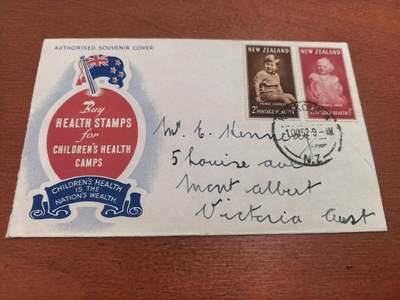 AUTHORISED SOUVENIR COVER
Buy
HEALTH STAMPS
for
CHILDREN'S HEALTH
CAMPS
CHILDREN'S HEALTH
IS THE
NATION'S WEALTH.
NEW ZEALAND
PRINCE CHARLES
POSTAGE
NEW ZEALAND
HEALTH
9-AM
N.Z.
5 Louise ave
Mont albert
Victoria Aust